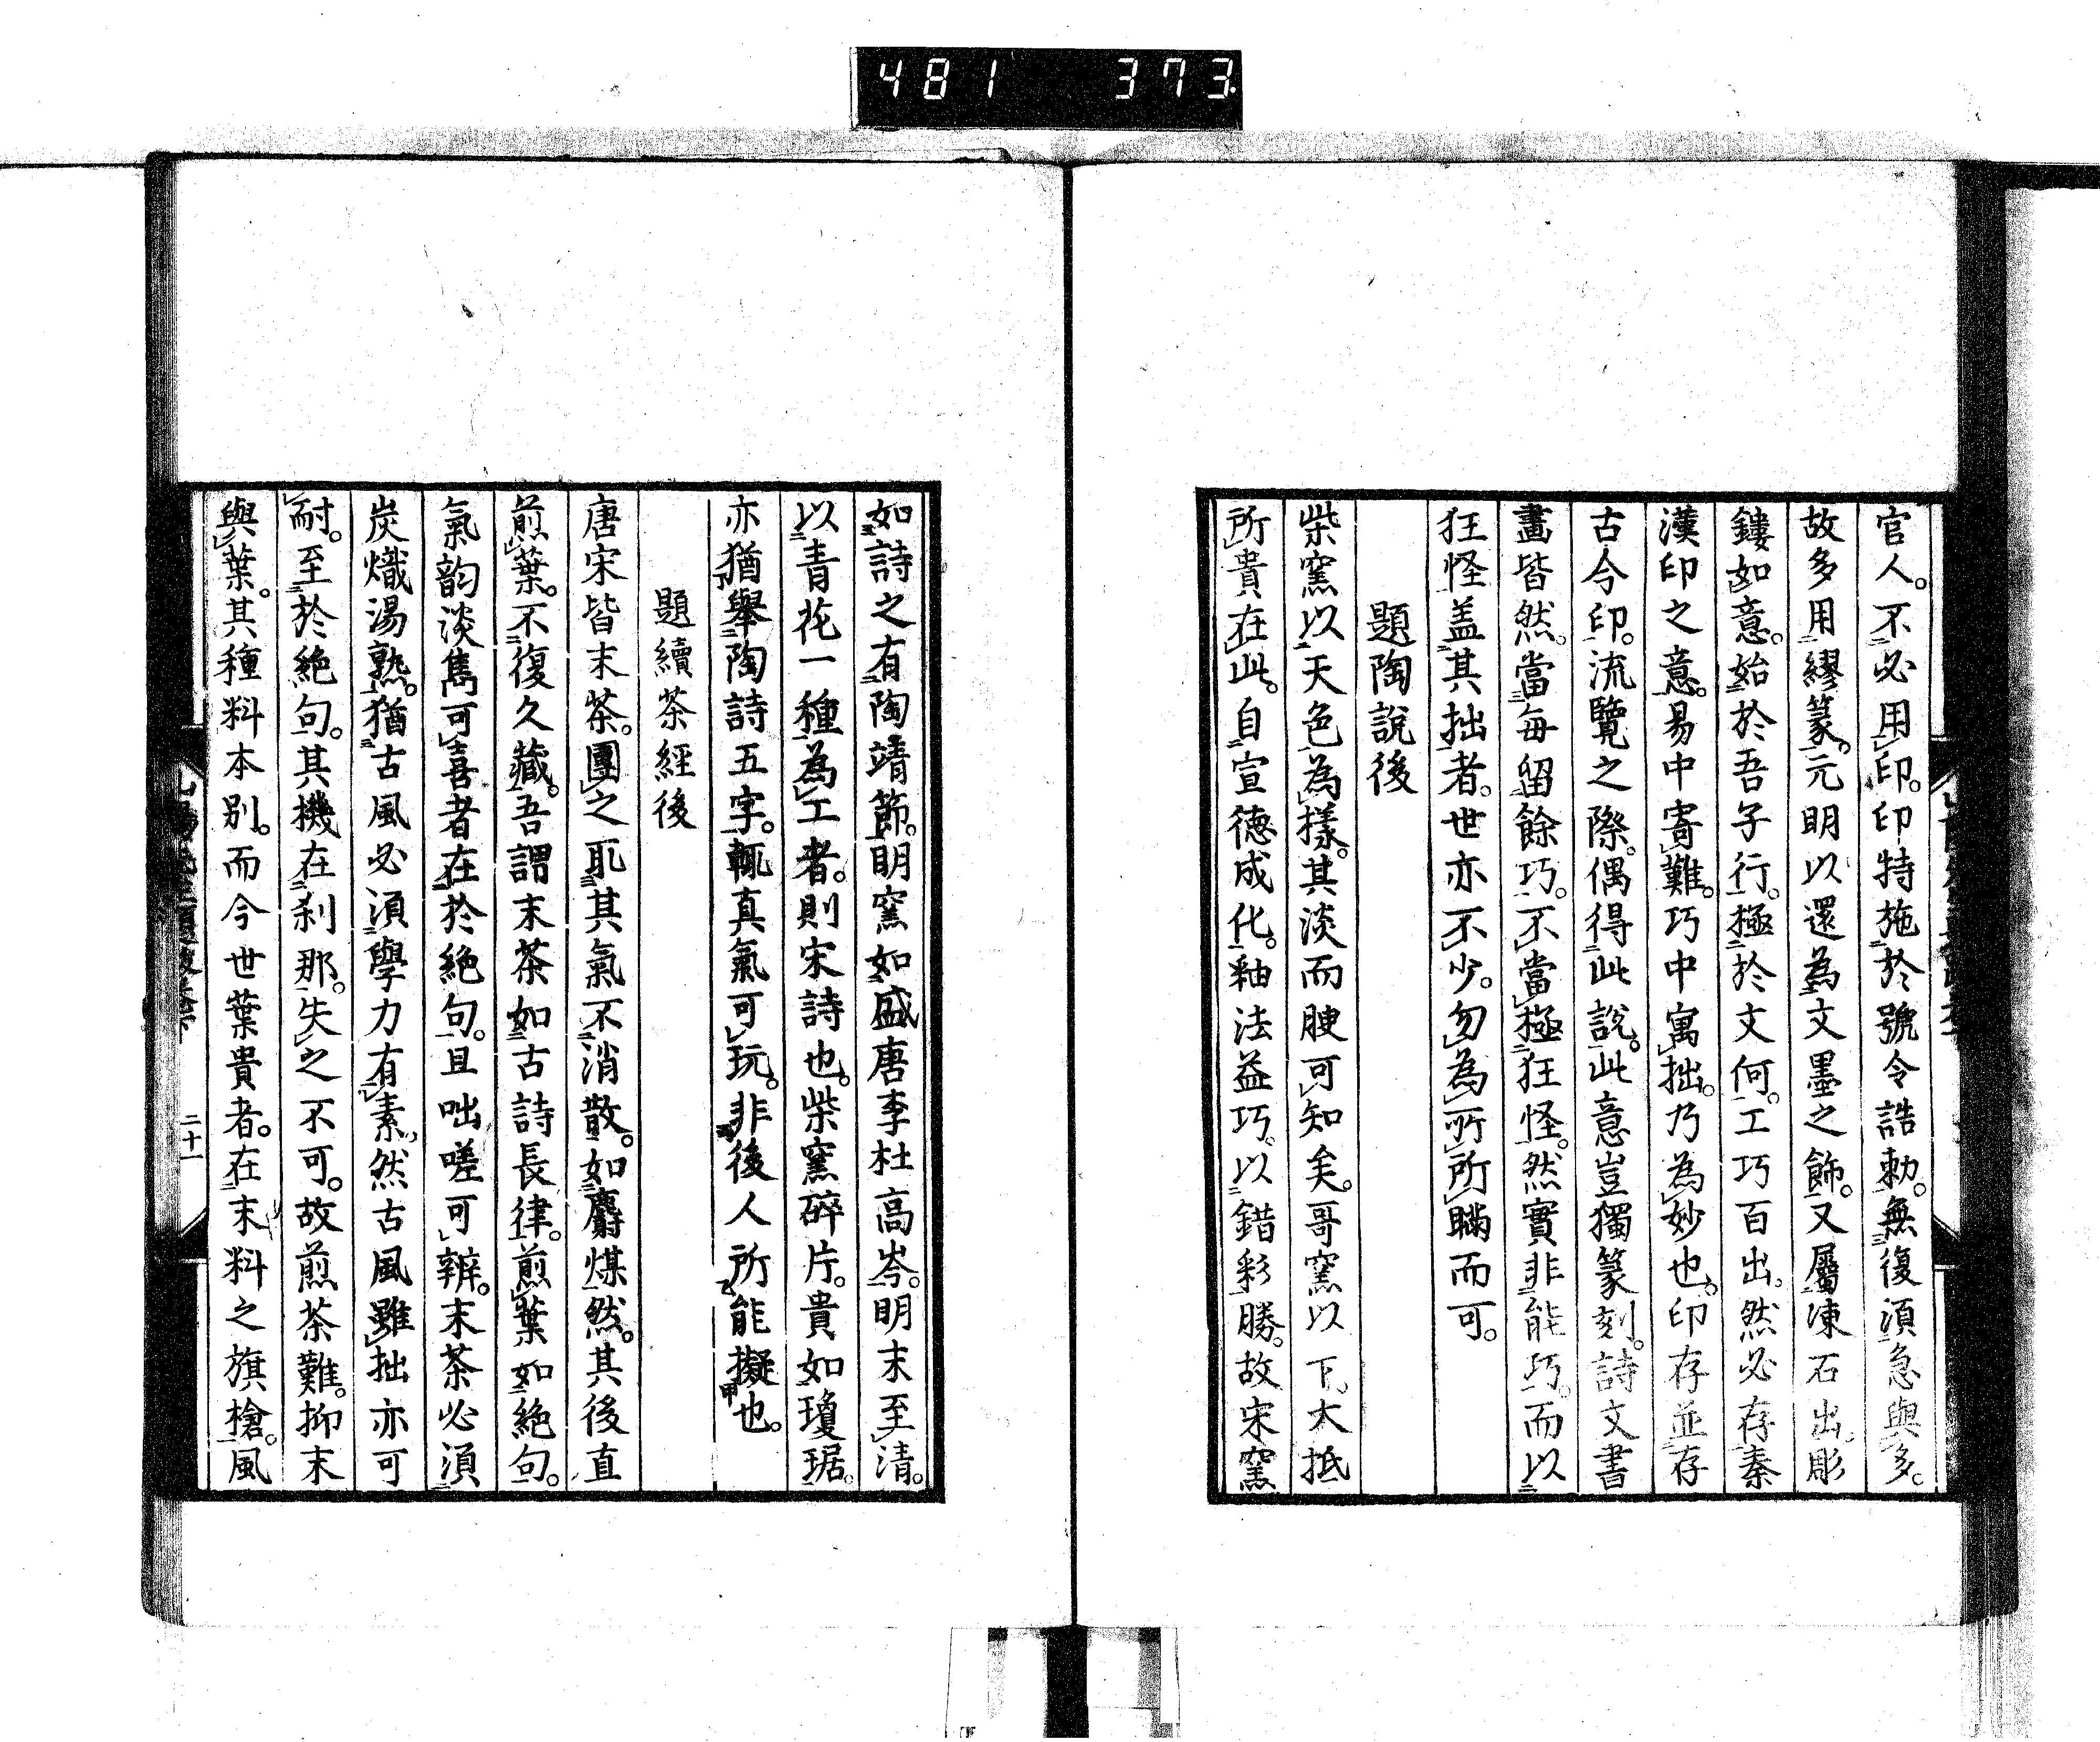 481 373
官人。不必用印。印特施於號令誥勅。無復須急與多。
故多用繆篆。元明以還為文墨之飾。又屬凍石出。彫
鏤如意。始於吾子行。極於文何。工巧百出。然必存秦
漢印之意。易中寄難。巧中寓拙。乃為妙也。印存並存
古今印。流覽之際。偶得此說。此意豈獨篆刻。詩文書
畫皆然。當每留餘巧。不當極狂怪。然實非能巧。而以
狂怪盖其拙者。世亦不少。勿為所所瞞而可。
題陶說後
柴窯以天色為樣。其淡而腴可知矣。哥窯以下。大抵
所貴在此。自宣德成化。釉法益巧。以錯彩勝。故宋窯
如詩之有陶靖節。明窯如盛唐李杜高岑。明末至清。
以青花一種為工者。則宋詩也。柴窯碎片。貴如瓊琚。
亦猶舉陶詩五字。輒真氣可玩。非後人所能擬也。
題續茶經後
唐宋皆末茶。團之取其氣不消散。如麝煤然。其後直
煎葉。不復久藏。吾謂末茶如古詩長律。煎葉如絶句。
氣韵淡雋可喜者在於絶句。且咄嗟可辨。末茶必須
炭熾湯熟。猶古風必須學力有素。然古風雖拙亦可
耐。至於絶句。其機在刹那。失之不可。故煎茶難。抑末
與葉。其種料本別。而今世葉貴者。在末料之旗槍。風
二十一